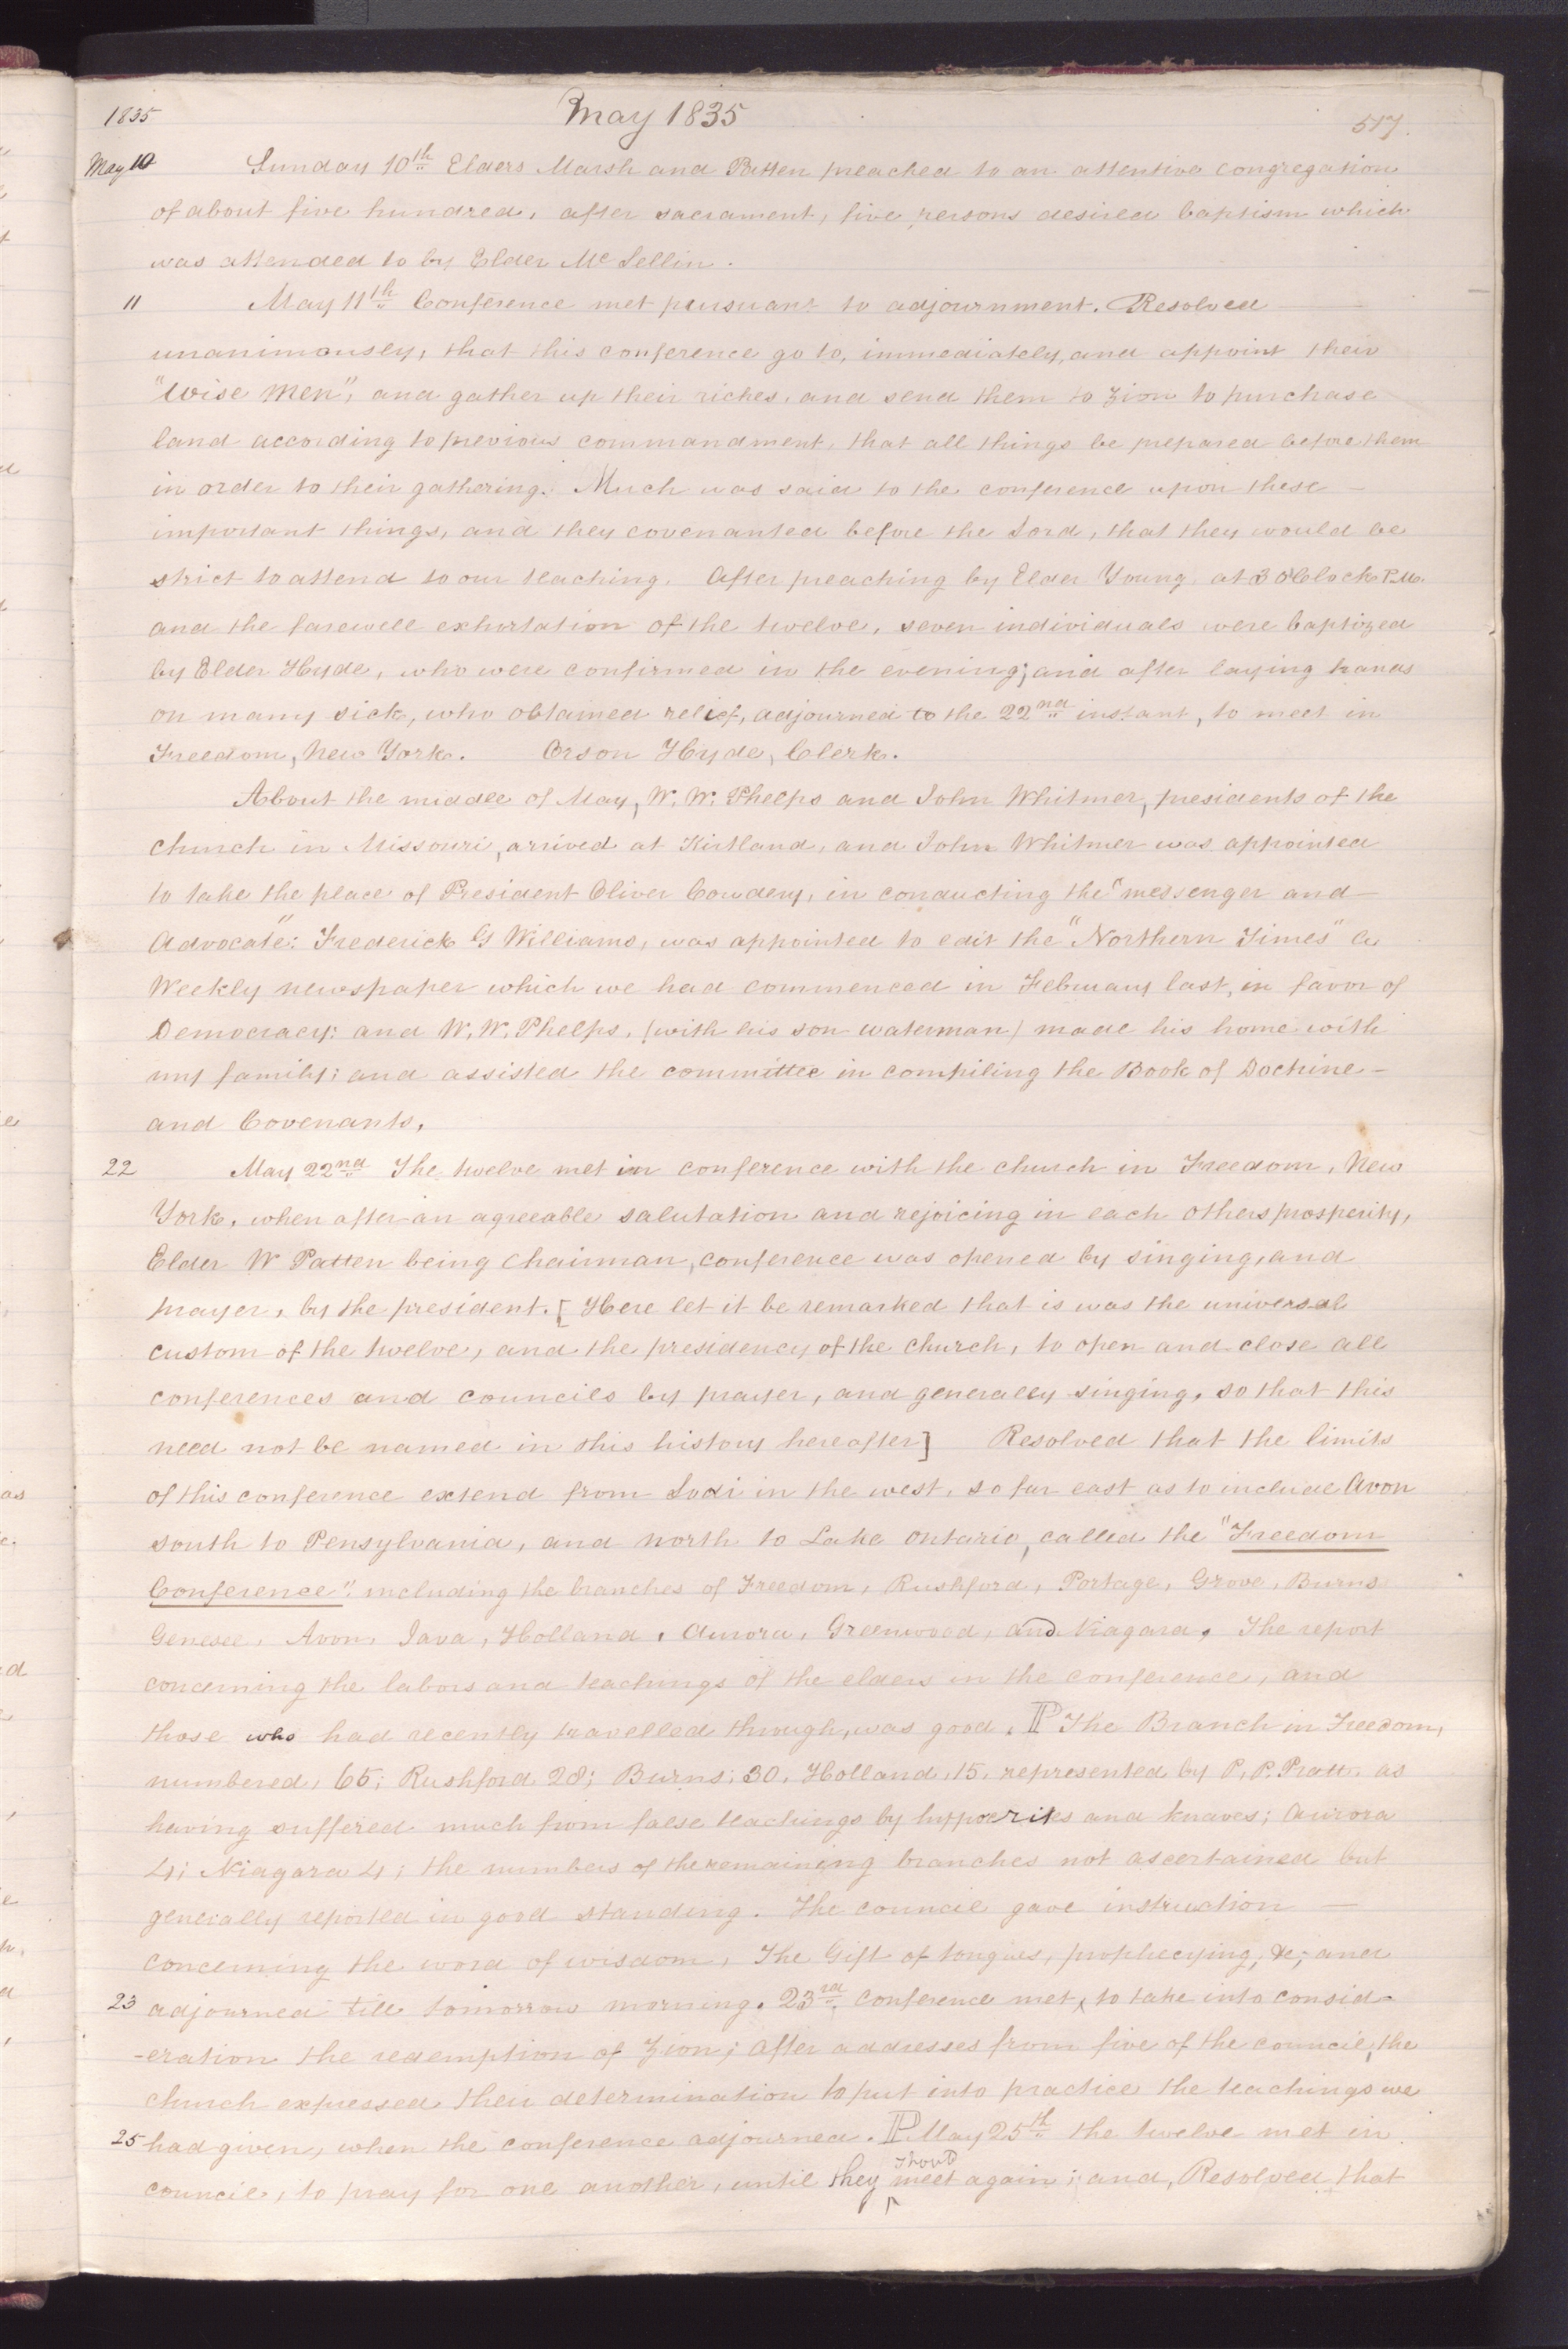 1835 May 1835 517.
May 10 Sunday 10th Elders Marsh and Patten preached to an attentive congregation
of about five hundred, after sacrament, five persons desired baptism which
was attended to by Elder Mc Lellin.
11 May 11th Conference met pursuant to adjournment. Resolved —
unanimously, that this conference go to, immediately, and appoint their
"Wise Men", and gather up their riches, and send them to Zion to purchase
land according to previous commandment, that all things be prepared before them
in order to their gathering. Much was said to the conference upon these —
important things, and they covenanted before the Lord, that they would be
strict to attend to our teaching. After preaching by Elder Young at 3 o'Clock P.M.
and the farewell exhortation of the twelve, seven individuals were baptized
by Elder Hyde, who were confirmed in the evening; and after laying hands
on many sick, who obtained relief, adjourned to the 22nd instant, to meet in
Freedom, New York. Orson Hyde, Clerk.
About the middle of May, W. W. Phelps and John Whitmer, presidents of the
church in Missouri, arrived at Kirtland, and John Whitmer was appointed
to take the place of President Oliver Cowdery, in conducting the "messenger and —
Advocate": Frederick G Williams, was appointed to edit the "Northern Times" a
Weekly newspaper which we had commenced in February last, in favor of
Democracy: and W. W. Phelps, (with his son waterman) made his home with
my family; and assisted the committee in compiling the Book of Doctrine —
and Covenants.
22 May 22nd The twelve met in conference with the church in Freedom, New
York, when after an agreeable salutation and rejoicing in each others prosperity,
Elder W Patten being Chairman, conference was opened by singing, and
prayer, by the president. [Here let it be remarked that is was the universal
custom of the twelve, and the presidency of the church, to open and close all
conferences and councils by prayer, and generally singing, so that this
need not be named in this history hereafter] Resolved that the limits
of this conference extend from Lodi in the west, so far east as to include Avon
south to Pensylvania, and north to Lake Ontario, called the "Freedom
Conference". including the branches of Freedom, Rushford, Portage, Grove, Burns
Genesee, Avon, Java, Holland, Aurora, Greenwood, and Niagara. The report
concerning the labors and teachings of the elders in the conference, and
those who had recently travelled through, was good. P The Branch in Freedom,
numbered, 65; Rushford 28; Burns; 30, Holland, 15, represented by P. P. Pratt. as
having suffered much from false teachings by hypocrites and knaves; Aurora
4; Niagara 4; the numbers of the remaining branches not ascertained but
generally reported in good standing. The council gave instruction —
concerning the word of wisdom, The Gift of tongues, prophecying, &c; and
23 adjourned till tomorrow morning. 23rd conference met, to take into consid-
-eration the redemption of Zion; After addresses from five of the council, the
church expressed their determination to put into practice the teachings we
25 had given, when the conference adjourned. P May 25th the twelve met in
council, to pray for one another, until they should meet again; and, Resolved that